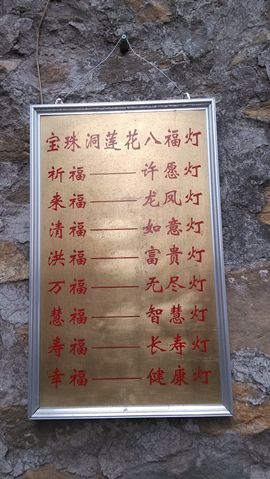 宝珠洞莲花八福灯
祈福——许愿灯
来福——龙凤灯
清福——如意灯
洪福——富贵灯
万福——无尽灯
慧福——智慧灯
寿福——长寿灯
幸福——健康灯